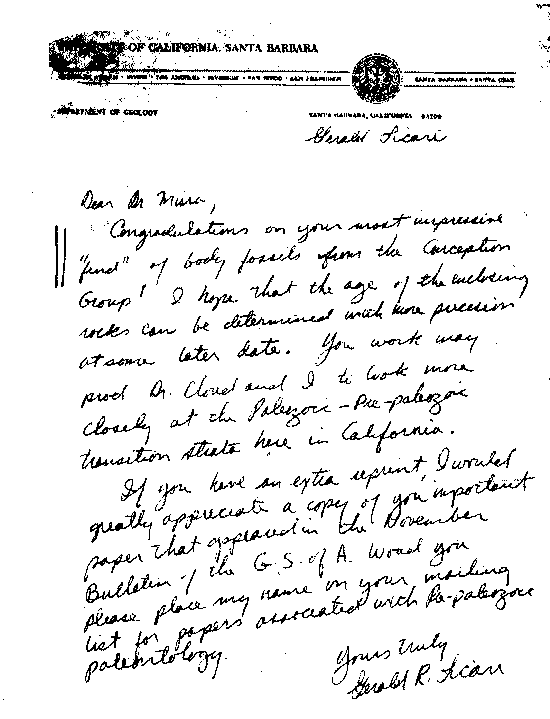 OF CALIFORNIA, SANTA BARBARA
LOS ANGELES • RIVERSIDE • SAN DIEGO • SAN FRANCISCO
SANTA BARBARA • SANTA CRUZ
DEPARTMENT OF GEOLOGY
SANTA BARBARA, CALIFORNIA 93106
Gerald Licari
Dear Dr Misra,
Congradulations on your most impressive
"find" of body fossils from the Conception
Group! I hope that the age of the enclosing
rocks can be determined with more precision
at some later date. You work may
prod Dr. Cloud and I to look more
closely at the Paleozoic - Pre-paleozoic
transition strata here in California.
If you have an extra reprint, I would
greatly appreciate a copy of you important
paper that appeared in the November
Bulletin of the G.S. of A. Would you
please place my name on your mailing
list for papers associated with Pre-paleozoic
paleontology.
Yours truly
Gerald R. Licari